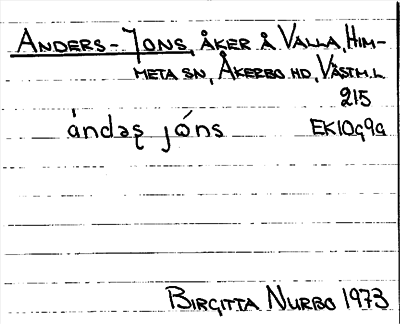 ANDERS-JONS, ÅKER Å VALLA, HIM-
META SN, ÅKERBO HD, VÄSTM.L
215
ándəʂ jóns EK10g9a
BIRGITTA NURBO 1973